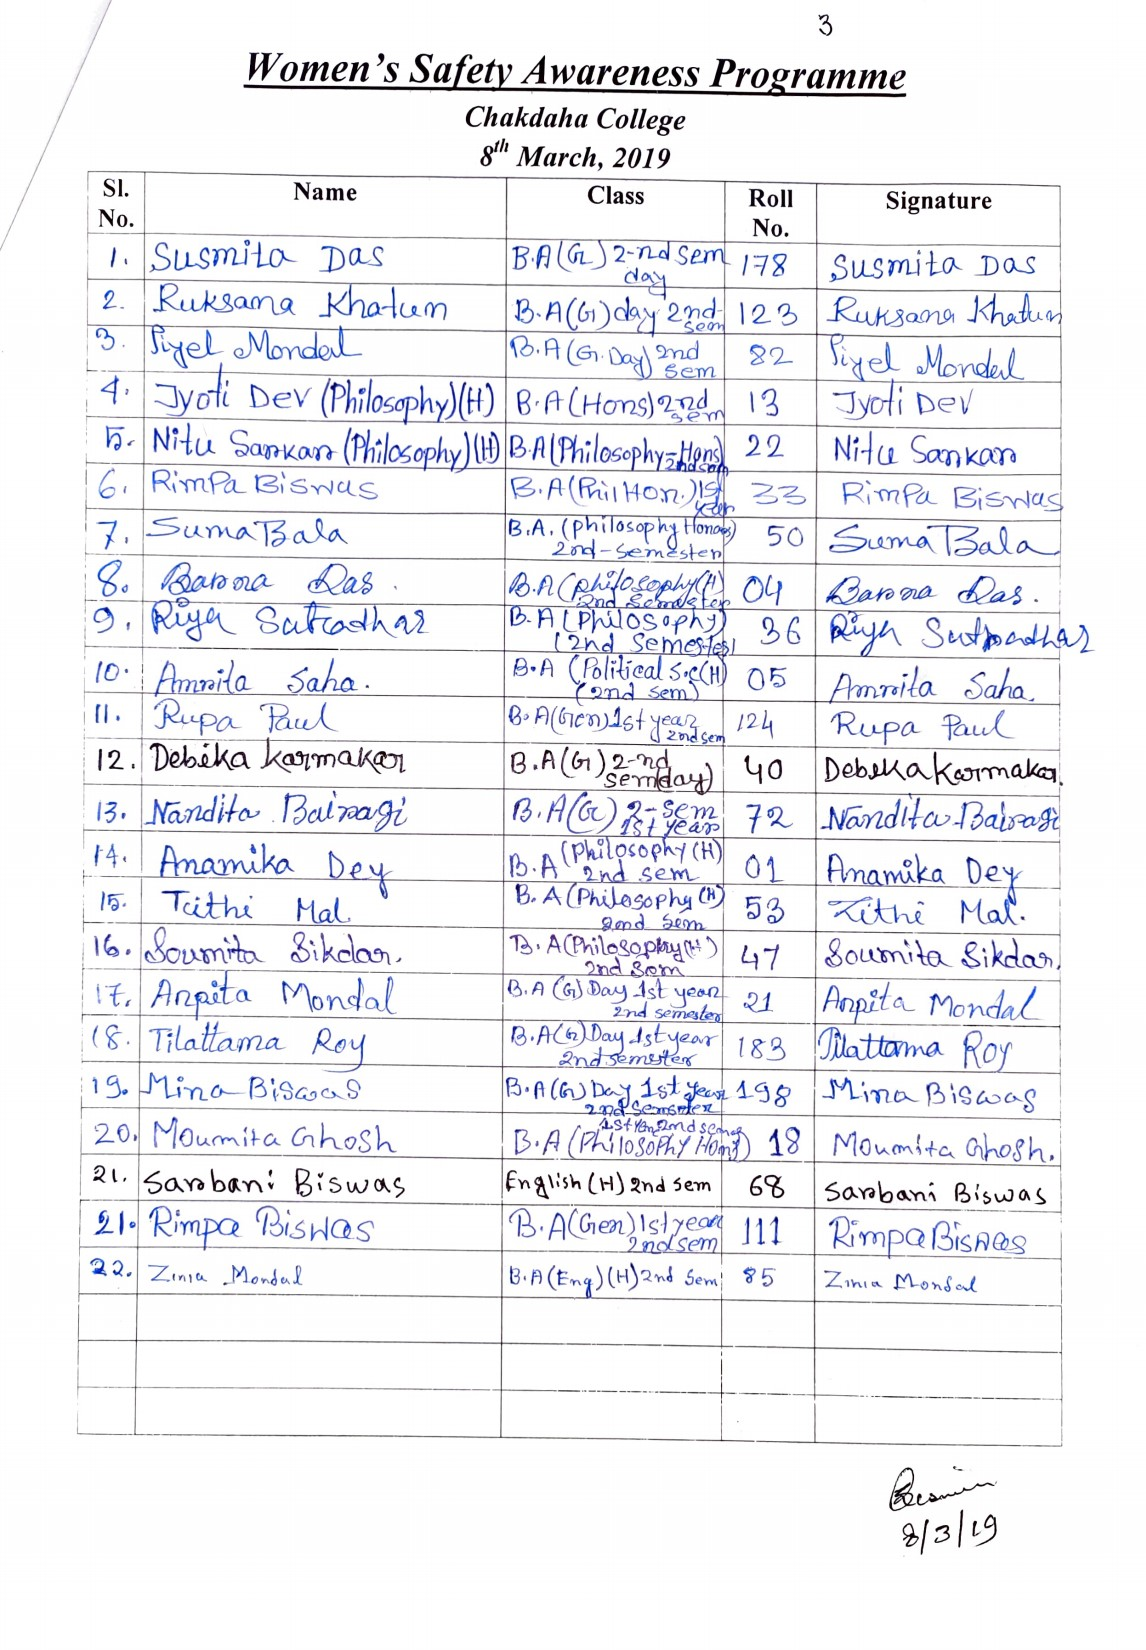 3
Women's Safety Awareness Programme
Chakdaha College
8th March, 2019
Sl. No. Name Class Roll No. Signature
1. Susmita Das B.A(G) 2-nd sem day 178 Susmita Das
2. Ruksana Khatun B.A(G) day 2nd sem 123 Ruksana Khatun
3. Piyel Mondal B.A(G.Day) 2nd sem 82 Piyel Mondal
4. Jyoti Dev (Philosophy)(H) B.A(Hons) 2nd sem 13 Jyoti Dev
5. Nitu Sarkar (Philosophy)(H) B.A(Philosophy-Hons) 2nd sem 22 Nitu Sarkar
6. Rimpa Biswas B.A(Phil Hon.) 1st year 33 Rimpa Biswas
7. Suma Bala B.A. (philosophy Honors) 2nd-semester 50 Suma Bala
8. Barna Das. B.A(philosophy(H) 2nd semester 04 Barna Das.
9. Riya Sutradhar B.A(Philosophy) (2nd semester) 36 Riya Sutradhar
10. Amrita Saha. B.A (Political s.c(H) (2nd sem) 05 Amrita Saha.
11. Rupa Paul B.A(Gen) 1st year 2nd sem 124 Rupa Paul
12. Debika Karmakar B.A(G) 2-nd sem(day) 40 Debika Karmakar.
13. Nandita Bairagi B.A(G) 2-sem 1st year 72 Nandita Bairagi
14. Anamika Dey B.A (Philosophy (H) 2nd sem 01 Anamika Dey
15. Tithi Mal. B.A(Philosophy (H) 2nd sem 53 Tithi Mal.
16. Soumita Sikdar. B.A(Philosophy(H) 2nd sem 47 Soumita Sikdar.
17. Arpita Mondal B.A (G) Day 1st year 2nd semester 21 Arpita Mondal
18. Tilattama Roy B.A(G) Day 1st year 2nd semester 183 Tilattama Roy
19. Mina Biswas B.A(G) Day 1st year 2nd Semester 198 Mina Biswas
20. Moumita Ghosh B.A(Philosophy Hons) 1st year 2nd semes 18 Moumita Ghosh.
21. Sarbani Biswas English (H) 2nd sem 68 Sarbani Biswas
21. Rimpa Biswas B.A(Gen) 1st year 2nd sem 111 Rimpa Biswas
22. Zinia Mondal B.A(Eng)(H) 2nd sem 85 Zinia Mondal
8/3/19